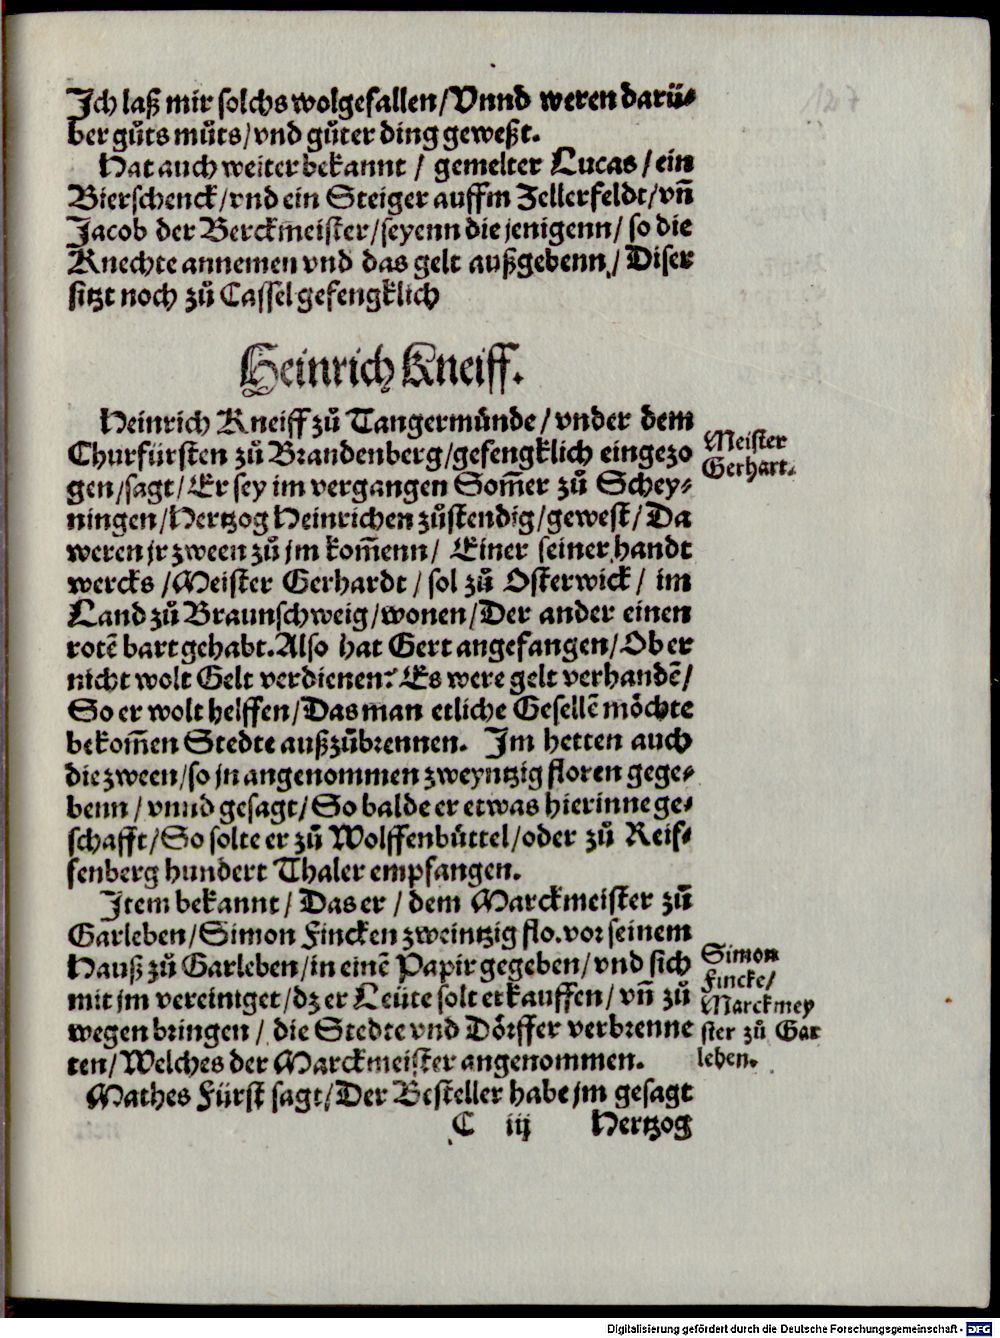 Ich laß mir solchs wolgefallen/Vnnd weren darü⸗
ber gůts můts/vnd gůter ding geweßt.
Hat auch weiter bekannt / gemelter Lucas/ein
Bierschenck/vnd ein Steiger auffm Zellerfeldt/vñ
Jacob der Berckmeister/seyenn die jenigenn/ so die
Knechte annemen vnd das gelt außgebenn/ Diser
sitzt noch zů Cassel gefengklich
Heinrich Kneiff.
Heinrich Kneiff zů Tangermünde/vnder dem
Churfürsten zů Brandenberg/gefengklich eingezo
gen/sagt/Er sey im vergangen Som̃er zů Schey⸗
ningen/Hertzog Heinrichen zůstendig/gewest/Da
weren jr zween zů jm kom̃enn/ Einer seiner handt
wercks /Meister Gerhardt/ sol zů Osterwick/ im
Land zů Braunschweig/wonen/Der ander einen
rotẽ bart gehabt. Also hat Gert angefangen/Ob er
nicht wolt Gelt verdienen? Es were gelt verhandẽ/
So er wolt helffen/Das man etliche Gesellẽ möchte
bekom̃en Stedte außzůbrennen. Im hetten auch
die zween/so jn angenommen zweyntzig floren gege⸗
benn/vnnd gesagt/So balde er etwas hierinne ge⸗
schafft/So solte er zů Wolffenbüttel/oder zů Reif⸗
fenberg hundert Thaler empfangen.
Item bekannt/ Das er / dem Marckmeister zů
Garleben/Simon Fincken zweintzig flo. vor seinem
Hauß zů Garleben/in einẽ Papir gegeben/vnd sich
mit jm vereiniget/dz er Leüte solt erkauffen/vñ zů
wegen bringen/ die Stedte vnd Dörffer verbrenne
ten/Welches der Marckmeister angenommen.
Mathes Fürst sagt/Der Besteller habe jm gesagt
C iij Hertzog
Meister
Gerhart.
Simon
Fincke/
Marckmey
ster zů Gar
leben.
Digitalisierung gefördert durch die Deutsche Forschungsgemeinschaft - DFG